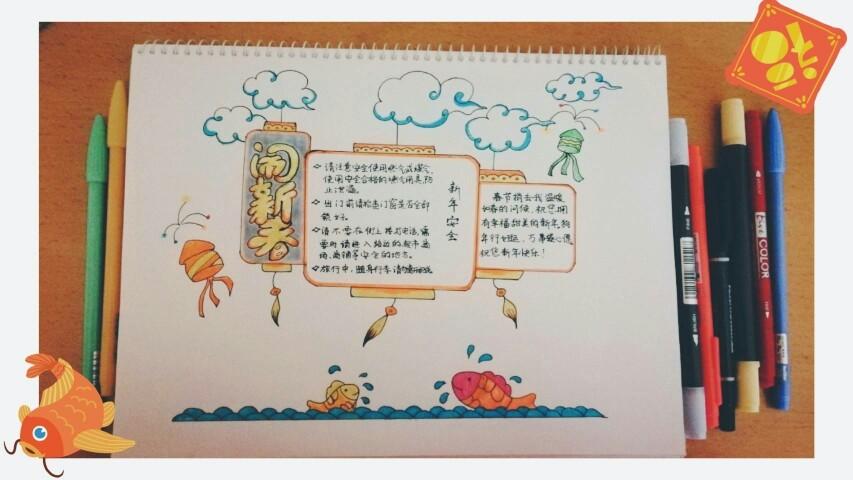 闹新春
◇请注意安全使用燃气或煤气,
使用安全合格的燃气用具,防
止泄漏。
◇出门前请检查门窗是否全部
锁好。
◇请不要在街上接打电话,需
要时请进入路边的超市商
场、商铺等安全的地方。
◇旅行中,随身行李请勿离开视线
新年安全
春节捎去我温暖
如春的问候,祝您拥
有幸福甜美的新年,狗
年行好运,万事顺心意
祝您新年快乐!
COLOR